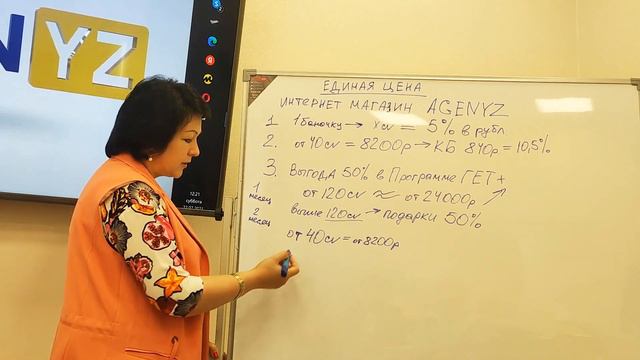 NYZ
12:21
суббота
ЕДИНАЯ ЦЕНА
ИНТЕРНЕТ МАГАЗИН AGENYZ
1. 1 баночку → xcv = 5% в рубл
2. от 40cv = 8200р → КБ 840р = 10,5%
3. Выгода 50% в Программе ГЕТ+
1 месяц от 120cv ≈ от 24000р
2 месяц выше 120cv → подарки 50%
от 40cv = от 8200р